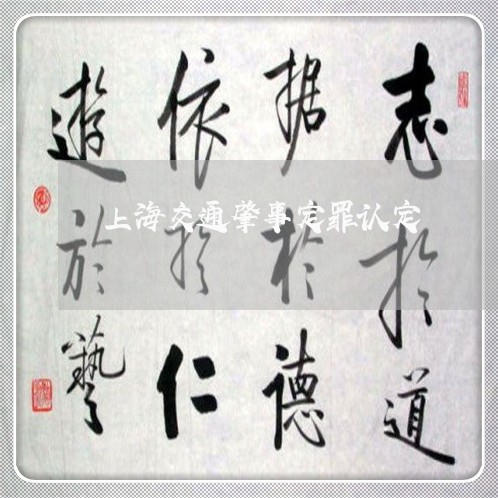 志於道
据於德
依於仁
遊於藝
上海交通肇事定罪认定